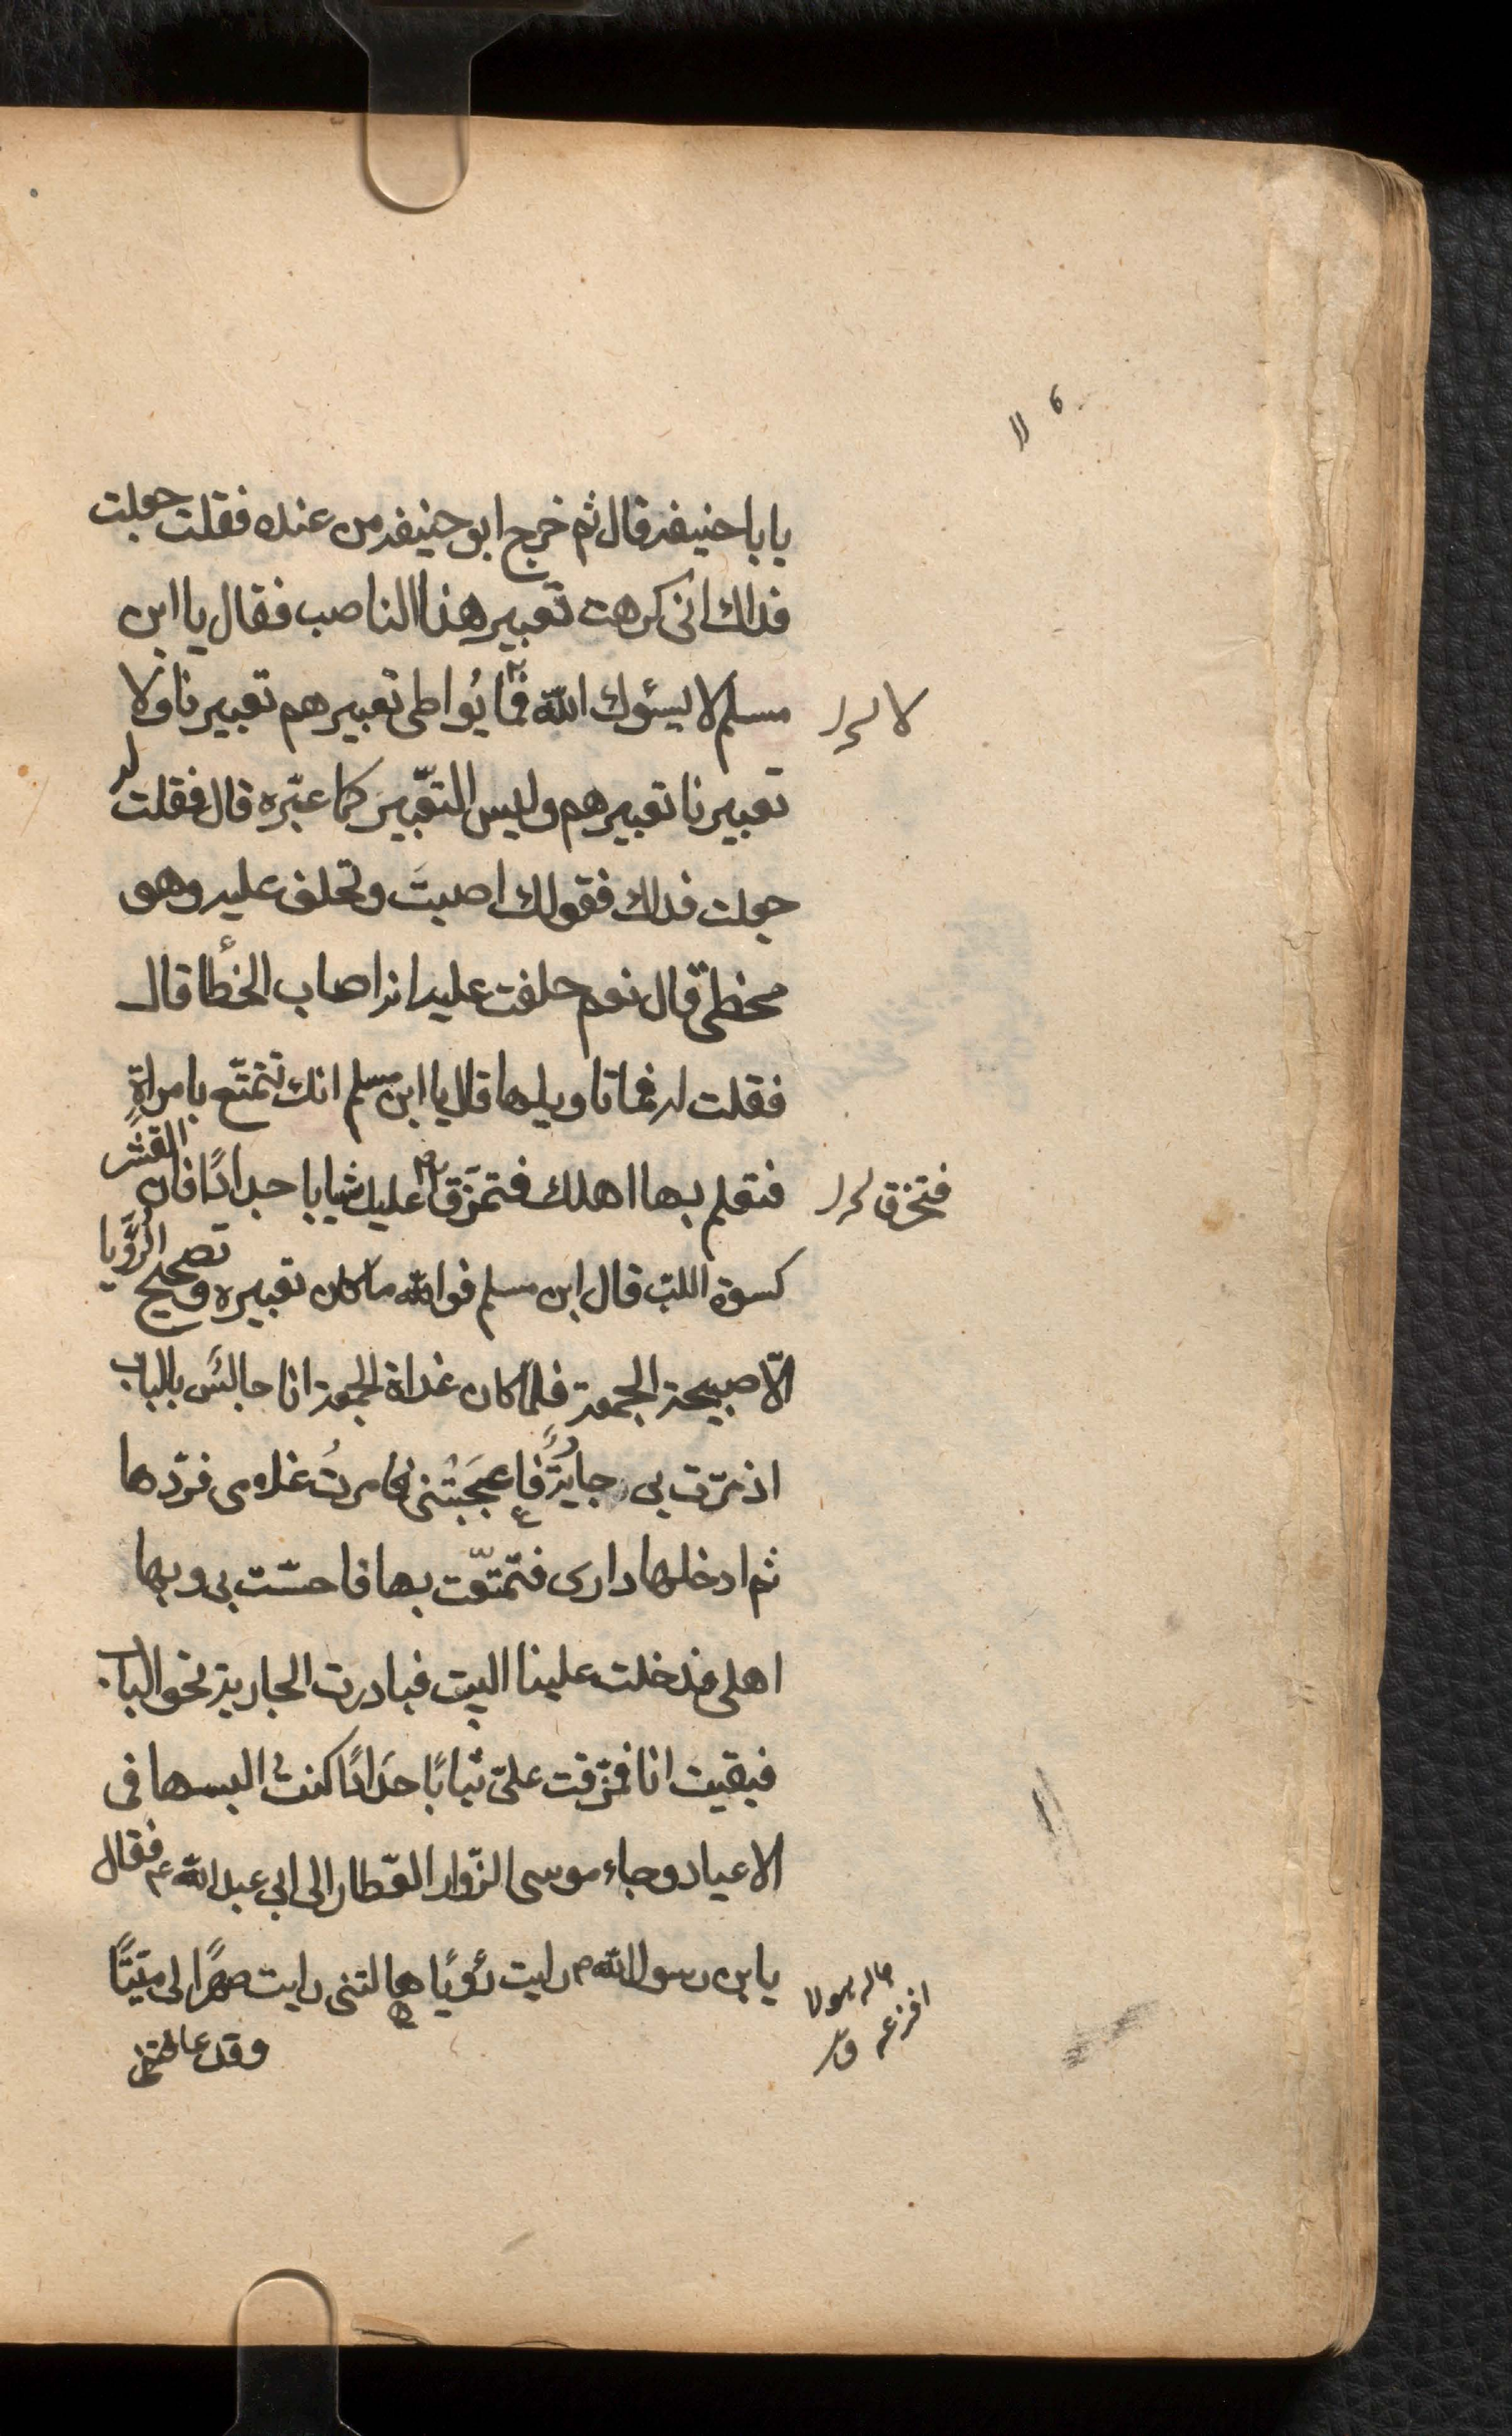 يا با حنيفه قال ثم خرج ابو حنيفه من عنده فقلت جعلت
فداك انى كرهت تعبير هذا الناصب فقال يا ابن
مسلم لا يسئوك الله فما يُواطى تعبيرهم تعبيرنا ولا
تعبيرنا تعبيرهم وليس التعّبيرَ كما عبّره قال فقلت له
جعلت فداك فقولك اصبتَ وتحلف عليه وهو
مخطئ قال نعم حلفت عليه انه اصاب الخطأ قال
فقلت له فما تاويلها قال يا ابن مسلم انك تتمتّع بامراةٍ
فتعلم بها اهلك فتمزّق عليك ثيابا جدادًا فان القشر
كسوة اللب قال ابن مسلم فوالله ما كان بين تعبيره وتصحيح الرّؤيا
الّا صبيحة الجمعة فلما كان غداة الجمعة انا جالسَ بالباب
اذ مرّت بى جاريةٌ فاعجبَتْنى فامرتُ غلامى فردّها
ثم ادخلها دارى فتمتّعت بها فاحسّت بى وبها
اهلى فدخلت علينا البيت فبادرت الجارية نحو الباب
فبقيت انا فمزّقت علىّ ثيابًا جدادًا كنتُ البسها فى
الاعياد وجاء موسى الزّوار العّطار الى ابى عبد الله ع فقال
يابن رسول الله ص رايت رؤيًا هالتنى رايت صهرًا لى ميّتًا
وقد عانقنى
لا
فتخرق